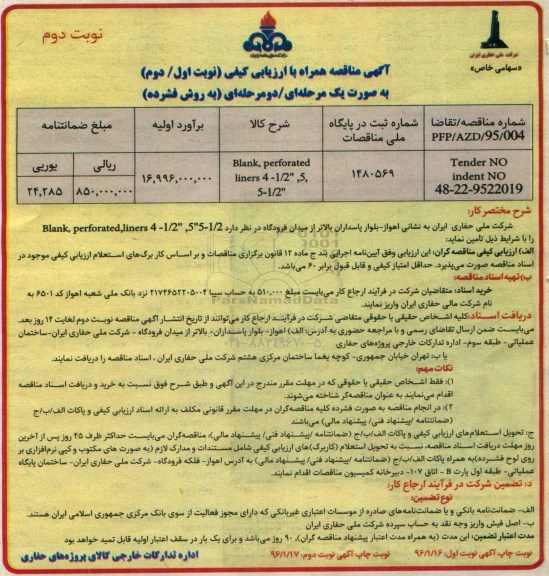 نوبت دوم
شرکت ملی حفاری ایران
«سهامی خاص»
آگهی مناقصه همراه با ارزیابی کیفی (نوبت اول/ دوم)
به صورت یک مرحله‌ای/دومرحله‌ای (به روش فشرده)
شماره مناقصه/تقاضا
PFP/AZD/95/004
شماره ثبت در پایگاه ملی مناقصات
شرح کالا
برآورد اولیه
مبلغ ضمانتنامه
Tender NO
indent NO
48-22-9522019
۱۴۸۰۵۶۹
Blank, perforated
liners 4 -1/2" ,5,
5-1/2"
۱۶,۹۹۶,۰۰۰,۰۰۰
ریالی
یوریی
۸۵۰,۰۰۰,۰۰۰
۲۴,۲۸۵
شرح مختصر کار:
شرکت ملی حفاری ایران به نشانی اهواز-بلوار پاسداران بالاتر از میدان فرودگاه در نظر دارد Blank, perforated,liners 4 -1/2" ,5"5-1/2
را با شرایط ذیل تامین نماید:
الف) ارزیابی کیفی مناقصه گران: این ارزیابی وفق آیین‌نامه اجرایی بند ج ماده ۱۲ قانون برگزاری مناقصات و بر اساس کار برگ‌های استعلام ارزیابی کیفی موجود در
اسناد مناقصه صورت می‌پذیرد. حداقل امتیاز کیفی و قابل قبول برابر ۶۰ می‌باشد.
ب) تهیه اسناد مناقصه:
خرید اسناد: متقاضیان شرکت در فرآیند ارجاع کار می‌بایست مبلغ ۵۱۰,۰۰۰ به حساب سیبا ۲۱۷۴۶۵۲۲۰۵۰۰۴ نزد بانک ملی شعبه اهواز کد ۶۵۰۱ به
نام شرکت مالی حفاری ایران واریز نمایند.
دریافت اسناد: کلیه اشخاص حقیقی یا حقوقی متقاضی شرکت در فرآیند ارجاع کار می‌توانند از تاریخ انتشار آگهی مناقصه نوبت دوم لغایت ۱۴ روز بعد.
می‌بایست ضمن ارسال تقاضای رسمی و با مراجعه حضوری به آدرس: الف) اهواز- بلوار پاسداران- بالاتر از میدان فرودگاه - شرکت ملی حفاری ایران-ساختمان
عملیاتی- طبقه سوم- اداره تدارکات خارجی پروژه‌های حفاری
یا ب: تهران خیابان جمهوری- کوچه یغما ساختمان مرکزی هشتم شرکت ملی حفاری ایران ، اسناد مناقصه را دریافت نمایند.
نکات مهم:
۱): فقط اشخاص حقیقی یا حقوقی که در مهلت مقرر مندرج در این آگهی و طبق شرح فوق نسبت به خرید و دریافت اسناد مناقصه
اقدام می‌نمایند به عنوان مناقصه‌گر شناخته می‌شوند.
۲): در انجام مناقصه به صورت فشرده کلیه مناقصه‌گران در مهلت مقرر قانونی مکلف به ارائه اسناد ارزیابی کیفی و پاکات الف/ب/ج
(ضمانتنامه /پیشنهاد فنی/ پیشنهاد مالی) می‌باشند
ج: تحویل استعلام‌های ارزیابی کیفی و پاکات الف/ب/ج (ضمانتنامه /پیشنهاد فنی/ پیشنهاد مالی): مناقصه‌گران می‌بایست حداکثر ظرف ۴۵ روز پس از آخرین
روز مهلت دریافت اسناد مناقصه، نسبت به تحویل استعلام (کاربرگ)های ارزیابی کیفی شامل مستندات و مدارک لازم (به صورت های مکتوب و کپی نرم‌افزاری بر
روی لوح فشرده)به همراه پاکات الف/ب/ج (ضمانتنامه /پیشنهاد فنی/ پیشنهاد مالی) به آدرس اهواز- فلکه فرودگاه- شرکت ملی حفاری ایران- ساختمان پایگاه
عملیاتی- طبقه اول پارت B - اتاق ۱۰۷- دبیرخانه کمیسیون مناقصات اقدام نمایند.
د: تضمین شرکت در فرآیند ارجاع کار:
نوع تضمین:
الف- ضمانت‌نامه بانکی و یا ضمانت‌نامه‌های صادره از موسسات اعتباری غیربانکی که دارای مجوز فعالیت از سوی بانک مرکزی جمهوری اسلامی ایران هستند.
ب- اصل فیش واریز وجه نقد به حساب سپرده شرکت ملی حفاری ایران
مدت اعتبار تضمین: این مدت (به همراه مدت اعتبار پیشنهاد مناقصه گران)، ۹۰ روز می‌باشد و برای یک بار در سقف اعتبار اولیه قابل تمید خواهد بود
نوبت چاپ آگهی نوبت اول: ۹۶/۱/۱۶
نوبت چاپ آگهی نوبت دوم: ۹۶/۱/۱۷
اداره تدارکات خارجی کالای پروژه‌های حفاری
ParsNamadData